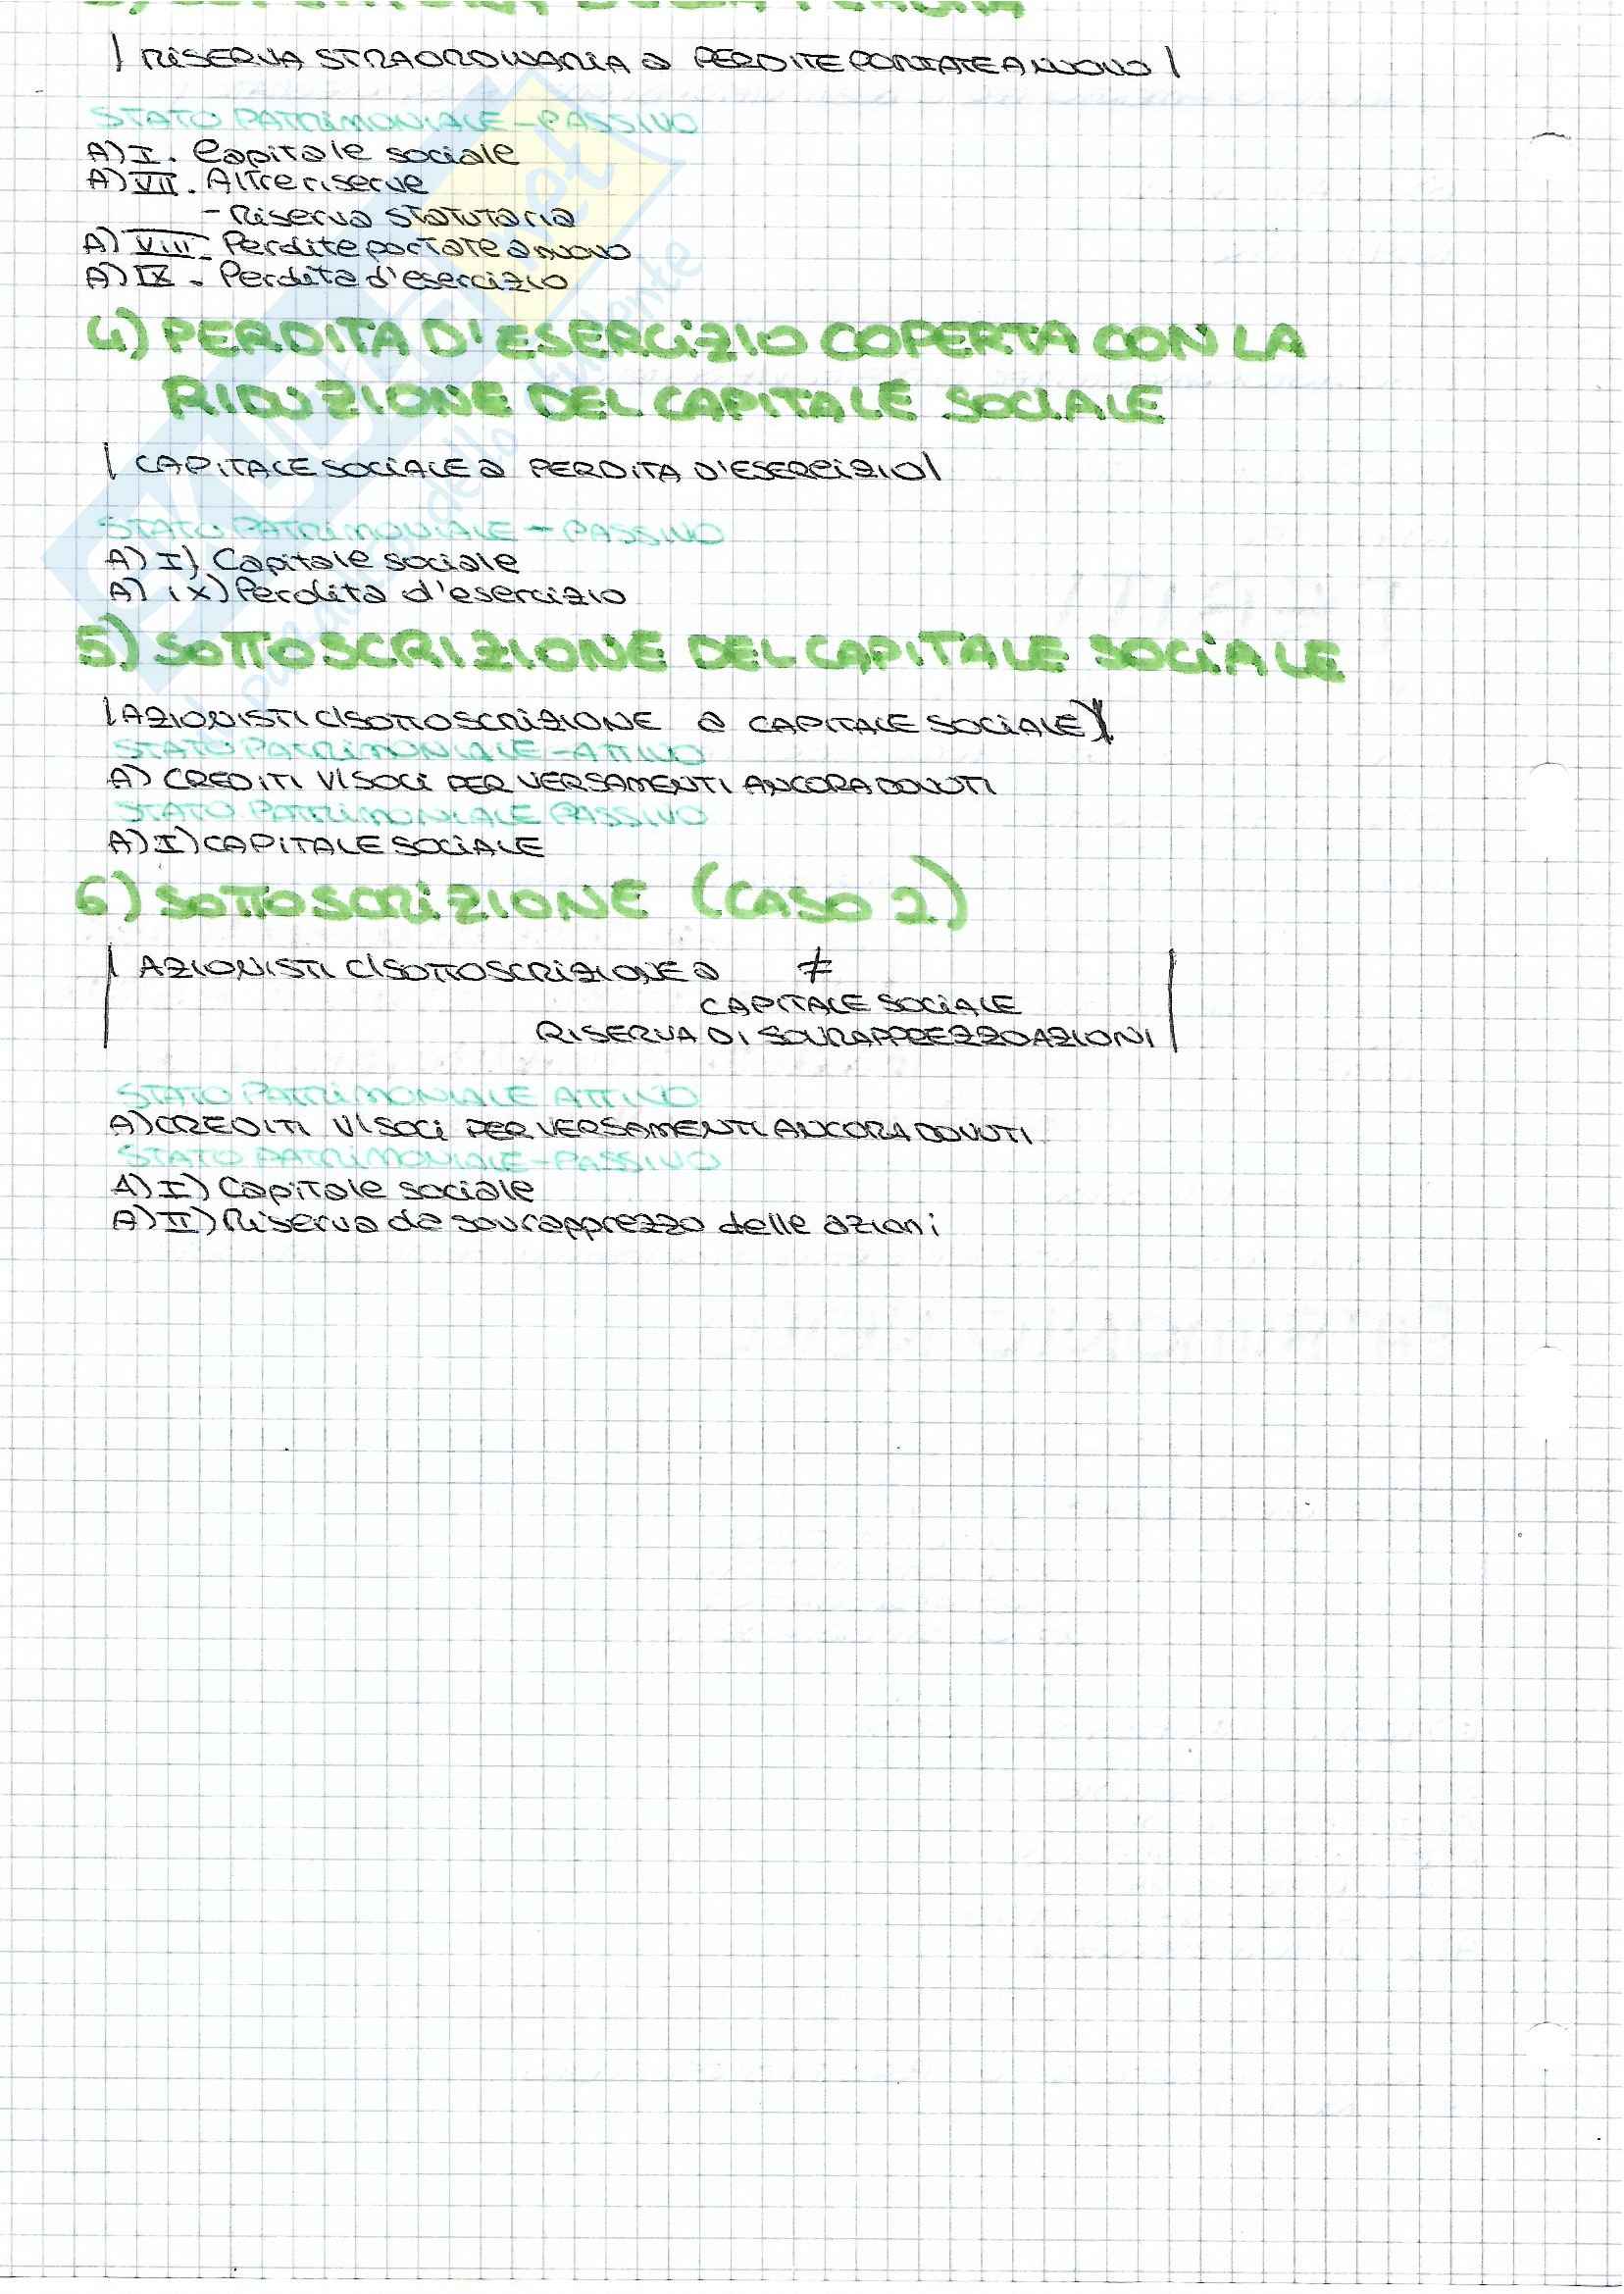 | RISERVA STRAORDINARIA a PERDITE PORTATE A NUOVO |
STATO PATRIMONIALE - PASSIVO
A) I. Capitale sociale
A) VII. Altre riserve
- Riserva statutaria
A) VIII - Perdite portate a nuovo
A) IX - Perdita d'esercizio
4) PERDITA D'ESERCIZIO COPERTA CON LA
RIDUZIONE DEL CAPITALE SOCIALE
| CAPITALE SOCIALE a PERDITA D'ESERCIZIO |
STATO PATRIMONIALE - PASSIVO
A) I) Capitale sociale
A) IX) Perdita d'esercizio
5) SOTTOSCRIZIONE DEL CAPITALE SOCIALE
| AZIONISTI C/SOTTOSCRIZIONE a CAPITALE SOCIALE |
STATO PATRIMONIALE - ATTIVO
A) CREDITI V/SOCI PER VERSAMENTI ANCORA DOVUTI
STATO PATRIMONIALE PASSIVO
A) I) CAPITALE SOCIALE
6) SOTTOSCRIZIONE (CASO 2)
| AZIONISTI C/SOTTOSCRIZIONE a ≠
CAPITALE SOCIALE
RISERVA DI SOVRAPPREZZO AZIONI |
STATO PATRIMONIALE ATTIVO
A) CREDITI V/SOCI PER VERSAMENTI ANCORA DOVUTI
STATO PATRIMONIALE - PASSIVO
A) I) Capitale sociale
A) II) Riserva da sovrapprezzo delle azioni